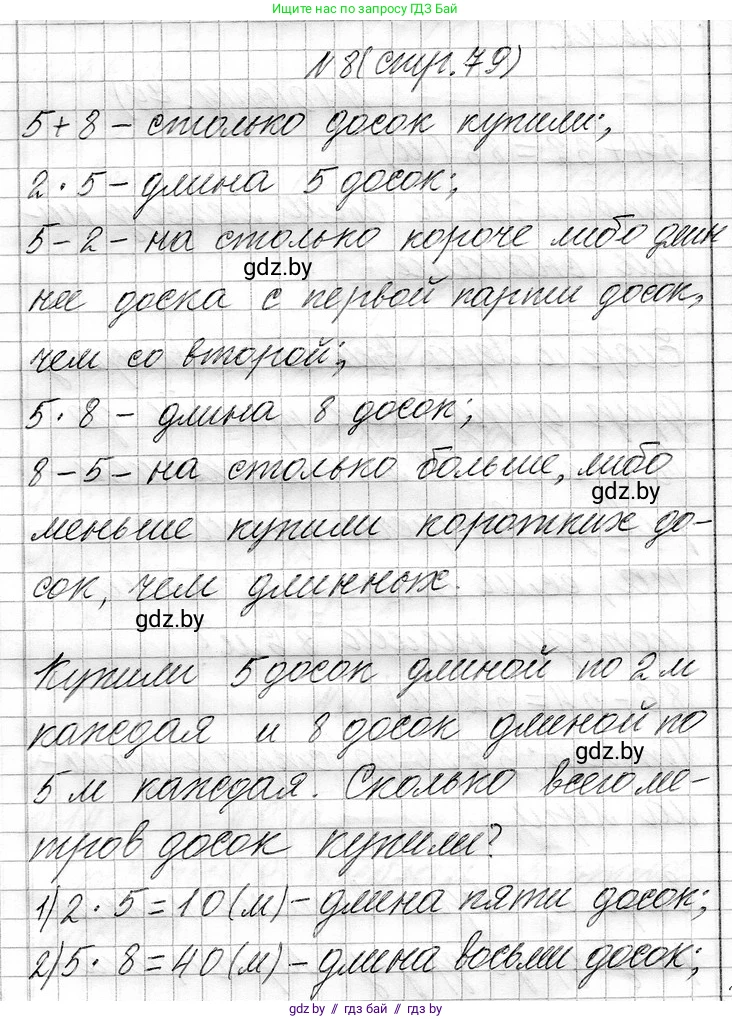 Ищите нас по запросу ГДЗ Бай
№8(стр.79)
5+8 – столько досок купили;,
2·5 – длина 5 досок;
5-2 – на столько короче либо длин
нее доска с первой парти досок,
gdz.by
чем со второй;
5·8 – длина 8 досок;
8-5 – на столько больше, либо
gdz.by
меньше купили коротких до-
сок, чем длинных.
gdz.by
Купили 5 досок длиной по 2 м
каждая и 8 досок длиной по
gdz.by
5 м каждая. Сколько всего ме-
тров досок купили?
1) 2·5=10(м) – длина пяти досок;
2) 5·8=40(м) – длина восьми досок;
gdz.by // гдз бай // gdz.by